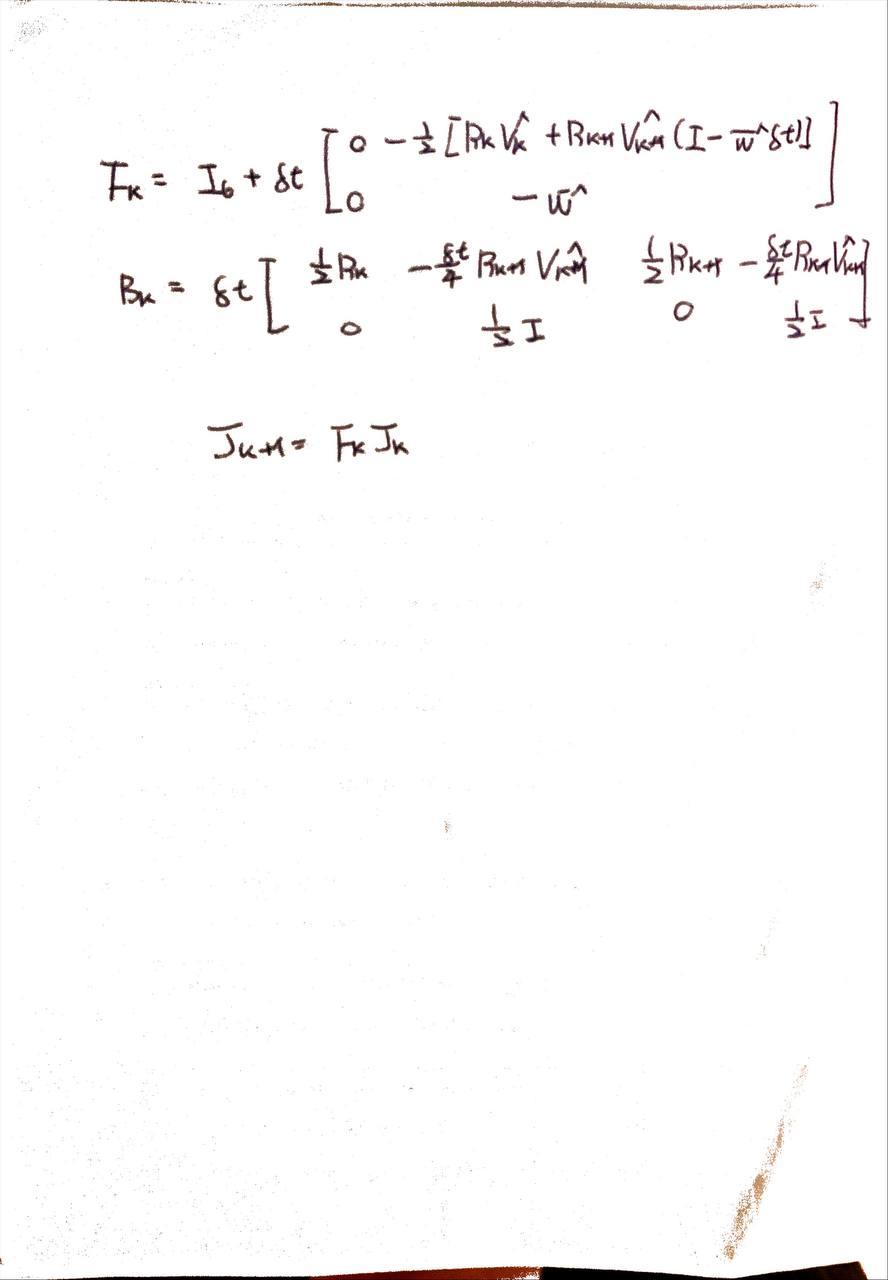 F_k = I_6 + δt [ 0 -1/2 [R_k V_k^ + R_{k+1} V_{k+1}^ (I - w̄^ δt)]
0 -w̄^ ]
B_k = δt [ 1/2 R_k -δt/4 R_{k+1} V_{k+1}^ 1/2 R_{k+1} -δt/4 R_{k+1} V_{k+1}^
0 1/2 I 0 1/2 I ]
J_{k+1} = F_k J_k